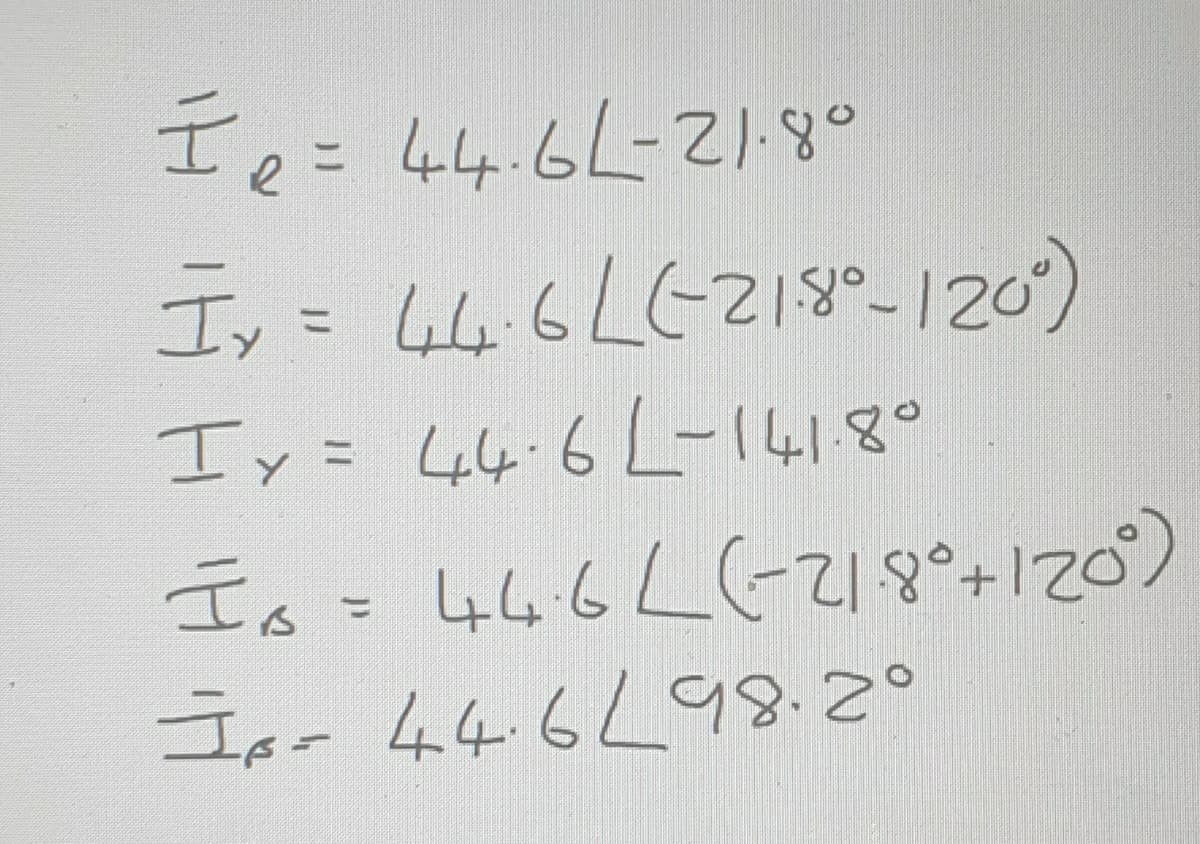 Ī_R = 44.6∠-21.8°
Ī_Y = 44.6∠(-21.8°-120°)
I_Y = 44.6∠-141.8°
Ī_B = 44.6∠(-21.8°+120°)
Ī_B = 44.6∠98.2°